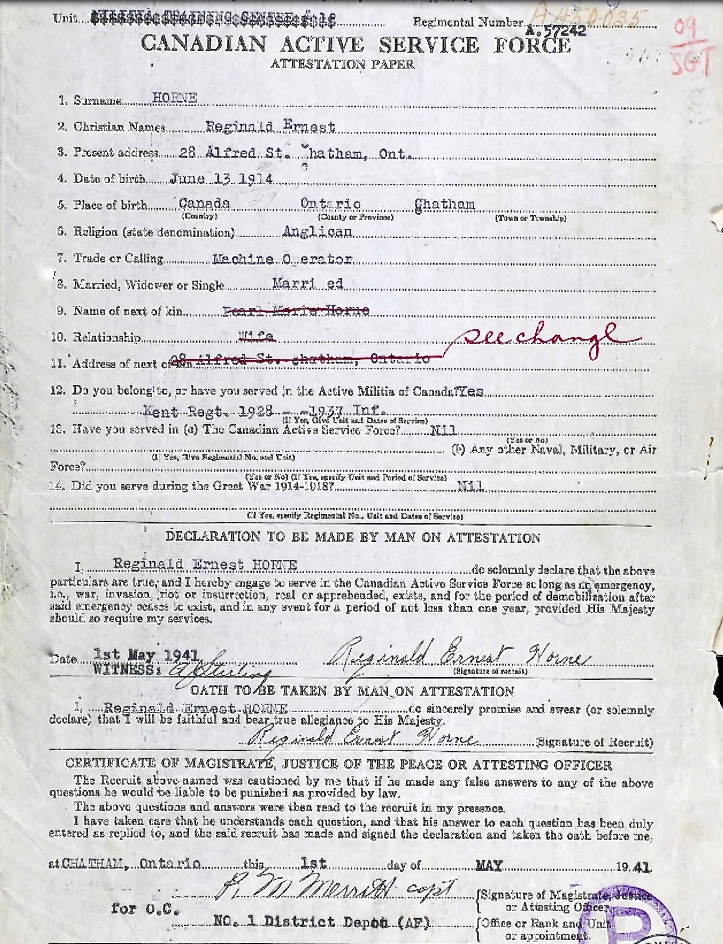 Unit Regimental Number A-450035
A.57242
09
SGT
CANADIAN ACTIVE SERVICE FORCE
ATTESTATION PAPER
1. Surname HORNE
2. Christian Names Reginald Ernest
3. Present address 28 Alfred St. Chatham, Ont.
4. Date of birth June 13 1914
5. Place of birth Canada Ontario Chatham
(Country) (County or Province) (Town or Township)
6. Religion (state denomination) Anglican
7. Trade or Calling Machine O erator
8. Married, Widower or Single Marri ed
9. Name of next of kin Pearl Marie Horne
10. Relationship Wife see change
11. Address of next of kin 28 Alfred St. Chatham, Ontario
12. Do you belong to, or have you served in the Active Militia of Canada? Yes
Kent Regt. 1928 - 1937 Inf.
(If Yes, Give Unit and Dates of Service)
13. Have you served in (a) The Canadian Active Service Force? Nil
(Yes or No)
(b) Any other Naval, Military, or Air
(If Yes, Give Regimental No. and Unit)
Force?
(Yes or No) (If Yes, specify Unit and Period of Service)
14. Did you serve during the Great War 1914-1918? Nil
(If Yes, specify Regimental No., Unit and Dates of Service)
DECLARATION TO BE MADE BY MAN ON ATTESTATION
I, Reginald Ernest HORNE do solemnly declare that the above
particulars are true, and I hereby engage to serve in the Canadian Active Service Force so long as an emergency,
i.e., war, invasion, riot or insurrection, real or apprehended, exists, and for the period of demobilization after
said emergency ceases to exist, and in any event for a period of not less than one year, provided His Majesty
should so require my services.
Date 1st May 1941 Reginald Ernest Horne
WITNESS: (Signature of Recruit)
OATH TO BE TAKEN BY MAN ON ATTESTATION
I, Reginald Ernest HORNE do sincerely promise and swear (or solemnly
declare) that I will be faithful and bear true allegiance to His Majesty.
Reginald Ernest Horne (Signature of Recruit)
CERTIFICATE OF MAGISTRATE, JUSTICE OF THE PEACE OR ATTESTING OFFICER
The Recruit above-named was cautioned by me that if he made any false answers to any of the above
questions he would be liable to be punished as provided by law.
The above questions and answers were then read to the recruit in my presence.
I have taken care that he understands each question, and that his answer to each question has been duly
entered as replied to, and the said recruit has made and signed the declaration and taken the oath before me,
at CHATHAM, Ontario this 1st day of MAY 1941
R. M. Merritt capt (Signature of Magistrate, Justice
or Attesting Officer
for O.C.
NO. 1 District Depot (AF) (Office or Rank and Unit
or appointment